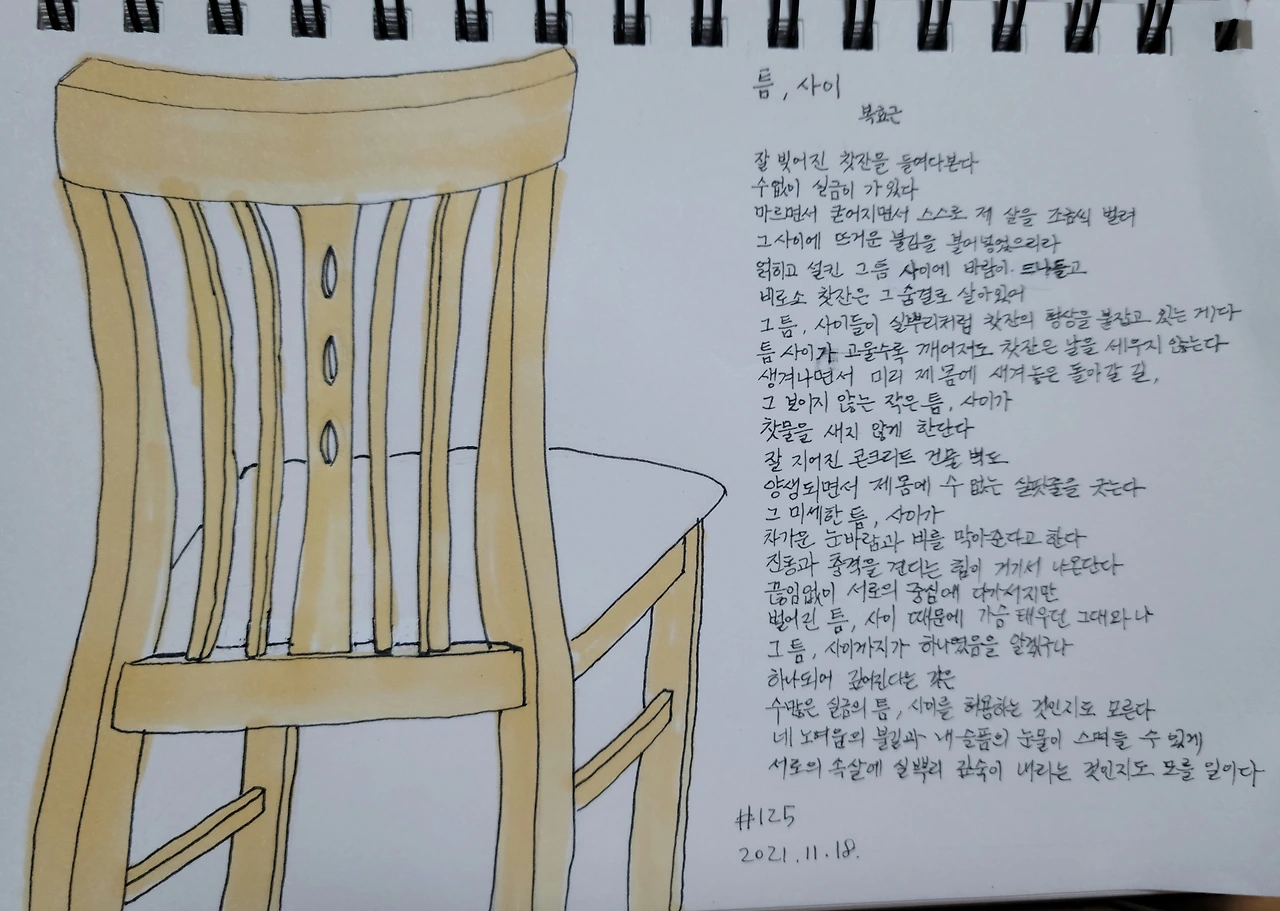 틈, 사이
복효근
잘 빚어진 찻잔을 들여다본다
수없이 실금이 가 있다
마르면서 굳어지면서 스스로 제 살을 조금씩 벌려
그 사이에 뜨거운 불김을 불어넣었으리라
얽히고 설킨 그 틈 사이에 바람이 드나들고
비로소 찻잔은 그 숨결로 살아있어
그 틈, 사이들이 실뿌리처럼 찻잔의 형상을 붙잡고 있는 게다
틈 사이가 고울수록 깨어져도 찻잔은 날을 세우지 않는다
생겨나면서 미리 제 몸에 새겨놓은 돌아갈 길,
그 보이지 않는 작은 틈, 사이가
찻물을 새지 않게 한단다
잘 지어진 콘크리트 건물 벽도
양생되면서 제 몸에 수 없는 실핏줄을 긋는다
그 미세한 틈, 사이가
차가운 눈바람과 비를 막아준다고 한다
진동과 충격을 견디는 힘이 거기서 나온단다
끊임없이 서로의 중심에 다가서지만
벌어진 틈, 사이 때문에 가슴 태우던 그대와 나
그 틈, 사이까지가 하나였음을 알겠구나
하나되어 깊어진다는 것은
수많은 실금의 틈, 사이를 허용하는 것인지도 모른다
네 노여움의 불길과 내 슬픔의 눈물이 스며들 수 있게
서로의 속살에 실뿌리 깊숙이 내리는 것인지도 모를 일이다
#125
2021.11.18.